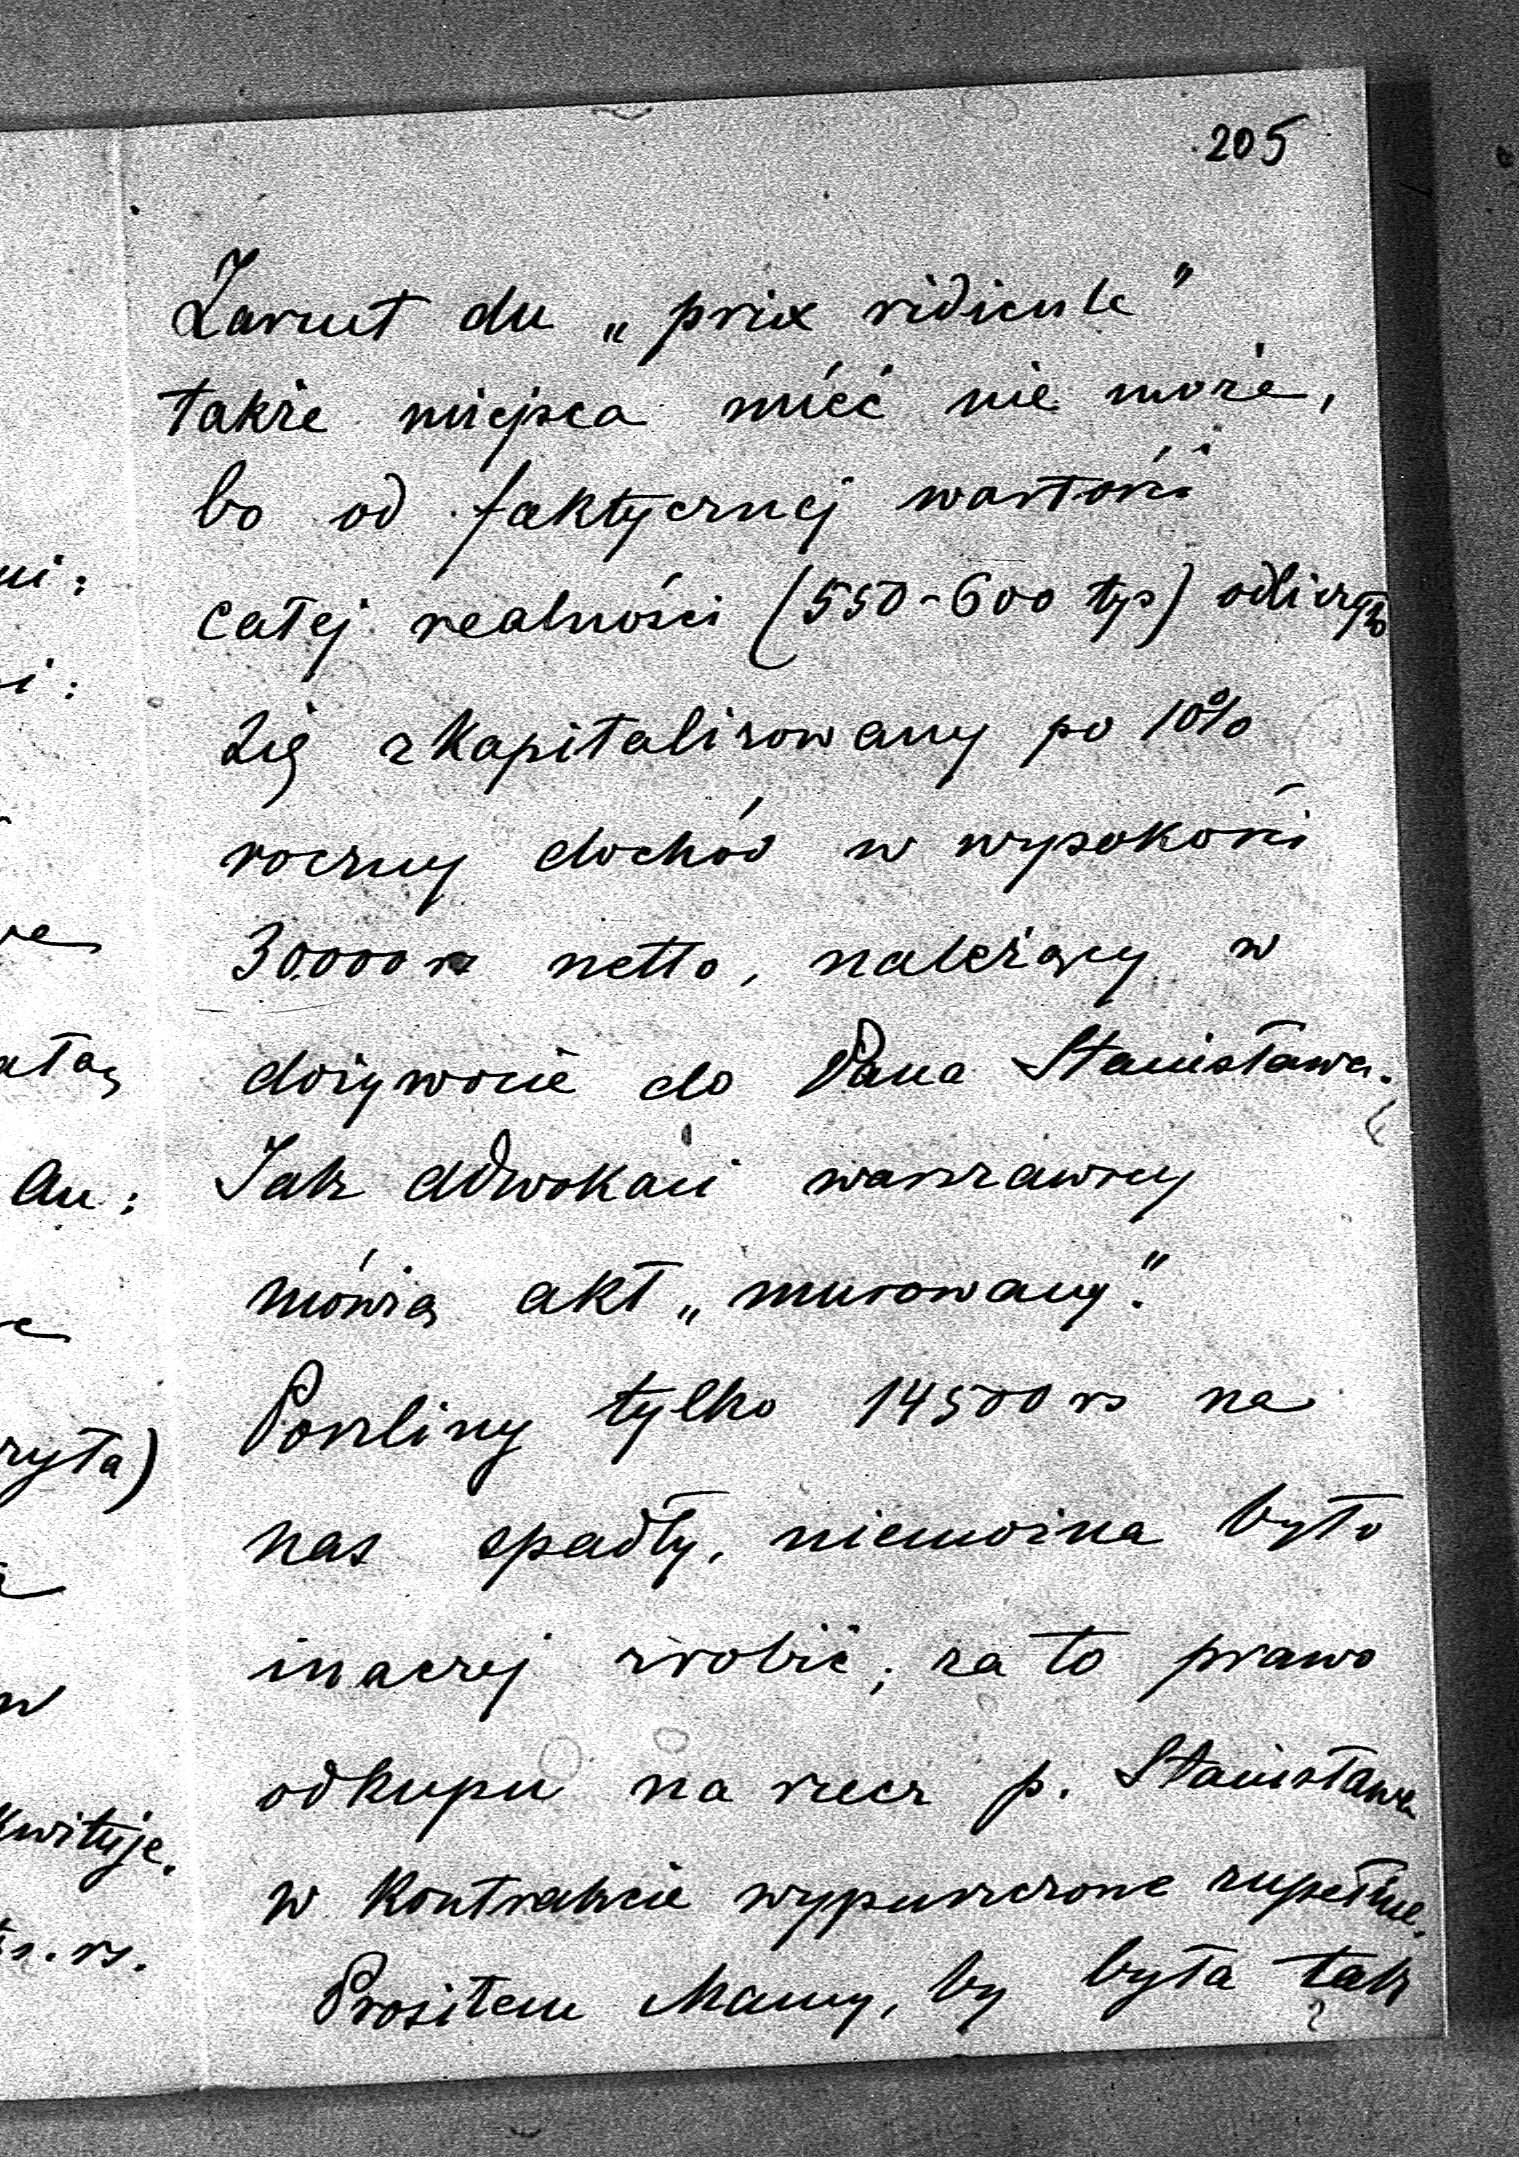 205
Zarzut du „prix ridicule"
także miejsca miéć nie może,
bo od faktycznej wartości
całej realności (550-600 tys) odliczyło
się skapitalizowany po 10%
roczny dochód w wysokości
30.000 rs netto, należący w
dożywocie do Pana Stanisława.
Jak adwokaci warszawscy
mówią akt „murowany".
Poszliny tylko 14500 rs na
nas spadły, niemożna było
inaczej zrobić; za to prawo
odkupu na rzecz p. Stanisława
w kontrakcie wypuszczone zupełnie.
Prosiłem Mamy, by była tak
ni:
i:
ve
ałą
An:
ryła)
w
kwituje.
rs.